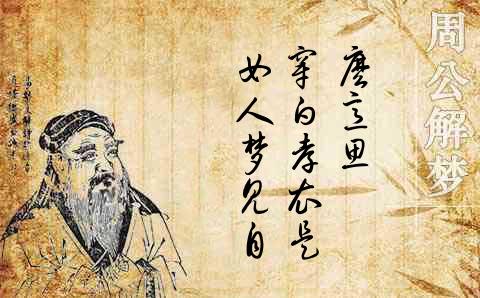 周公解梦
女人梦见自
穿白孝衣是
麼意思